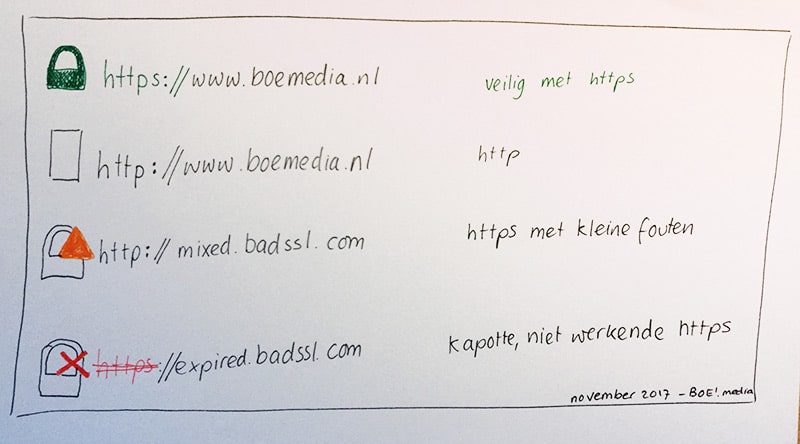 https://www.boemedia.nl veilig met https
http://www.boemedia.nl http
http://mixed.badssl.com https met kleine fouten
https://expired.badssl.com kapotte, niet werkende https
november 2017 - BOE!media